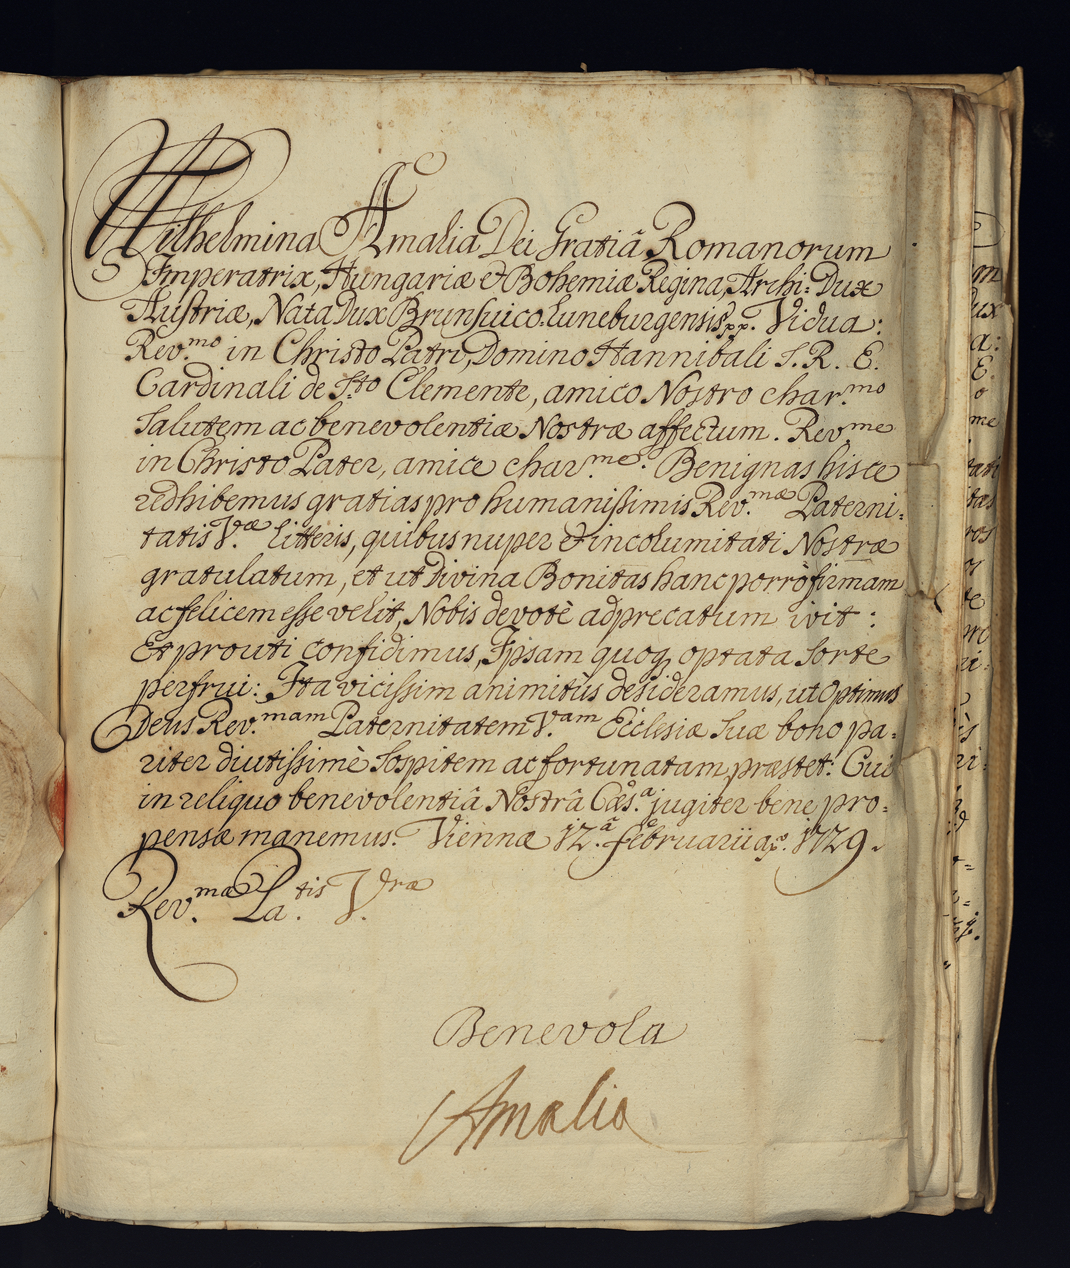 Wilhelmina Amalia Dei Gratiâ Romanorum
Imperatrix, Hungariæ et Bohemiæ Regina, Archi-Dux
Austriæ, Nata Dux Brunsuico-Luneburgensis pp. Vidua:
Rev.mo in Christo Patri, Domino Hannibali S. R. E.
Cardinali de S.to Clemente, amico Nostro char.mo
Salutem ac benevolentiæ Nostræ affectum. Rev.me
in Christo Pater, amice char.me. Benignas hisce
redhibemus gratias pro humanißimis Rev.mæ Paterni-
tatis V.æ litteris, quibus nuper et incolumitati Nostræ
gratulatum, et ut Divina Bonitas hanc porrò firmam
ac felicem esse velit, Nobis devotè adprecatum ivit:
Et prouti confidimus, Ipsam quoq optata sorte
perfrui: Ita vicissim animitùs desideramus, ut Optimus
Deus Rev.mam Paternitatem V.am Ecclesiæ Suæ bono pa-
riter diutissimè sospitem ac fortunatam præstet. Cui
in reliquo benevolentiâ Nostrâ Cæs.a jugiter bene pro-
pensæ manemus. Viennæ 12.â Februarii aō. 1729.
Rev.mæ Pa.tis V.ræ
Benevola
Amalia